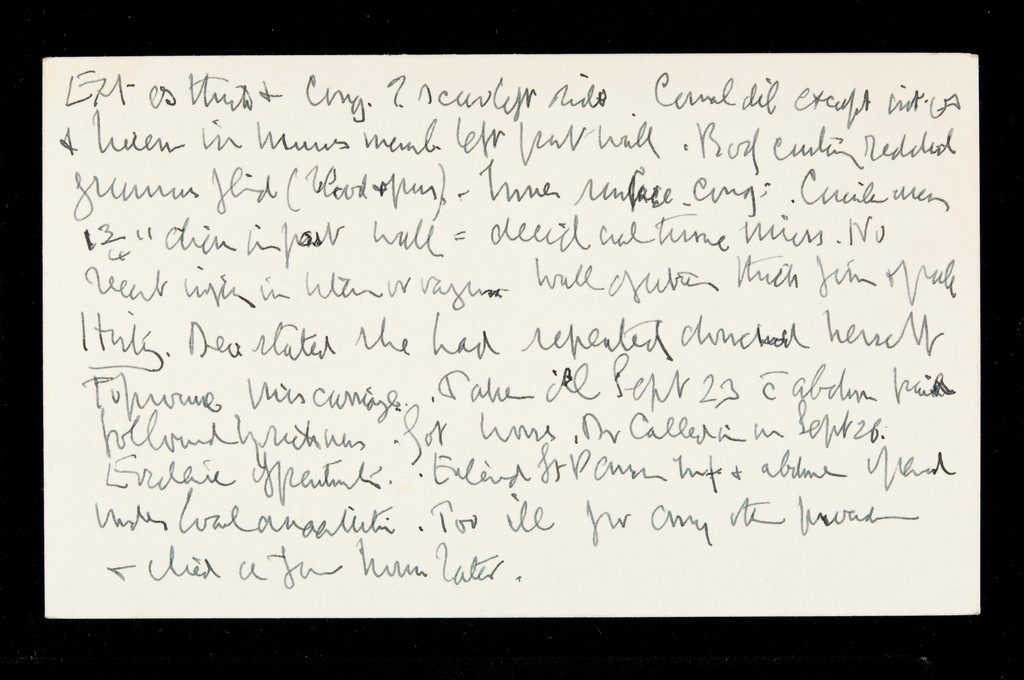 Ext os thick & cong. ? scar left side Canal dil except int. os
& hiem in mucus memb left post wall. Body containing reddish
grumous fluid (blood & pus). Inner surface cong: . Circular area
1 3/4" diam in post wall = decidual tissue micros. No
recent injury in uterus or vagina wall of uterus thick firm & pale
History. Dec stated she had repeatedly douched herself
To procure miscarriage. Taken ill Sept 23 c̄ abdom pain
followed by sickness. Got worse. Dr Called in on Sept 26.
Evidence of peritonitis. Entered St Pancras Inf & abdomen opened
under local anaesthetic. Too ill for any other procedure
& died a few hours later.